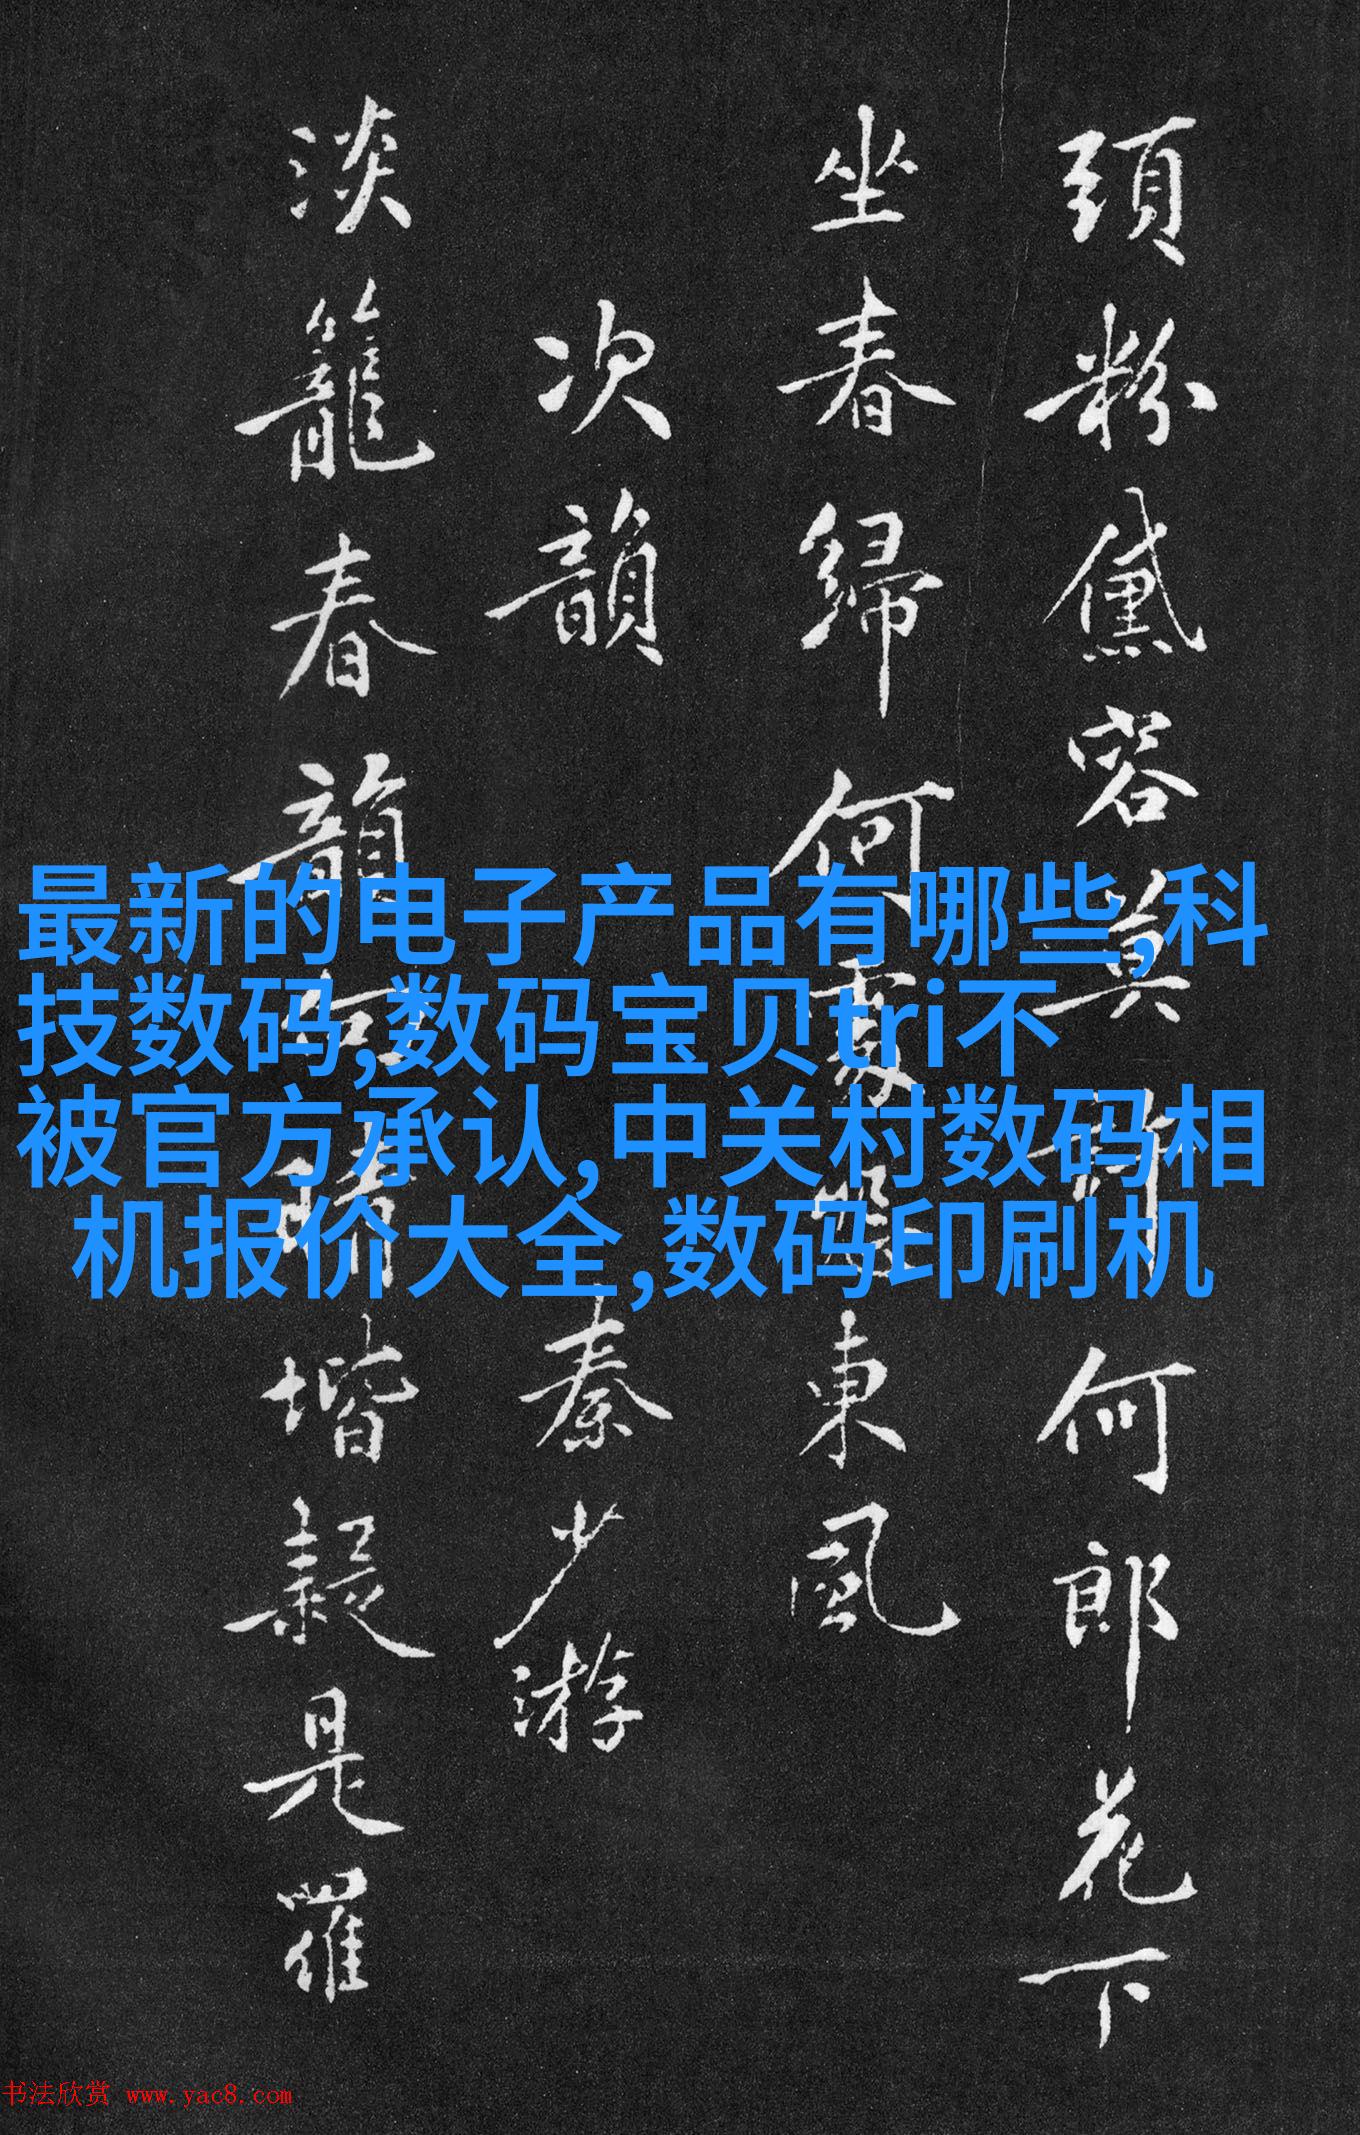 頭粉黛容莫何郎花下
坐春歸何處東風
次韻 秦少游
淡籠春韻堦疑是羅
最新的电子产品有哪些,科
技数码,数码宝贝tri不
被官方承认,中关村数码相
机报价大全,数码印刷机
书法欣赏 www.yac8.com